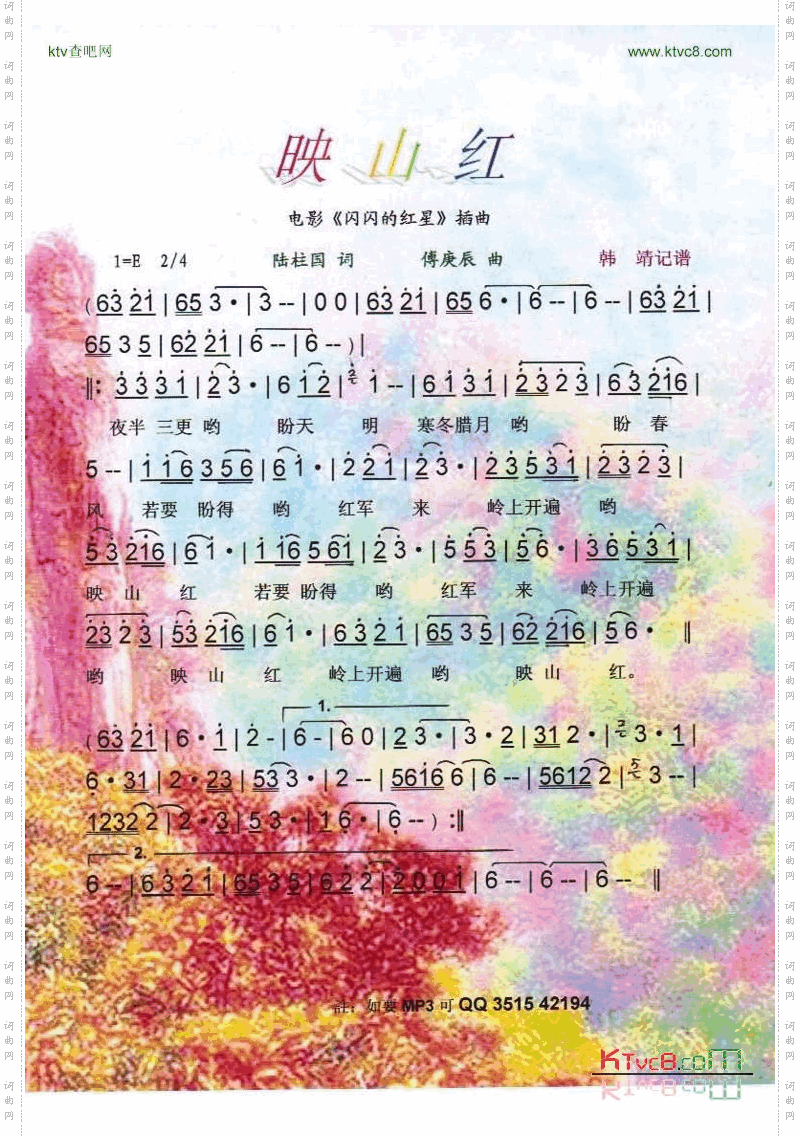 ktv查吧网 www.ktvc8.com
映山红
电影《闪闪的红星》插曲
1=E 2/4 陆柱国 词 傅庚辰 曲 韩 靖记谱
( 63 21 | 65 3 · | 3 -- | 0 0 | 63 21 | 65 6 · | 6 -- | 6 -- | 63 21 |
65 3 5 | 62 21 | 6 -- | 6 -- ) |
‖: 3 3 3 1 | 2 3 · | 6 1 2 | 2 1 -- | 6 1 3 1 | 2 3 2 3 | 6 3 216 |
夜半 三更 哟 盼天 明 寒冬腊月 哟 盼 春
5 -- | 1 16 3 56 | 6 1 · | 2 2 1 | 2 3 · | 2 3 5 3 1 | 2 3 2 3 |
风 若要 盼得 哟 红军 来 岭上开遍 哟
5 3 216 | 6 1 · | 1 16 5 61 | 2 3 · | 5 5 3 | 5 6 · | 3 6 5 3 1 |
映 山 红 若要 盼得 哟 红军 来 岭上开遍
23 2 3 | 53 216 | 6 1 · | 6 3 2 1 | 65 3 5 | 62 216 | 5 6 · ‖
哟 映 山 红 岭上开遍 哟 映 山 红。
1.
( 63 21 | 6 · 1 | 2 - | 6 - | 6 0 | 2 3 · | 3 · 2 | 31 2 · | 2 3 · 1 |
6 · 31 | 2 · 23 | 53 3 · | 2 -- | 5616 6 | 6 -- | 5612 2 | 5 3 -- |
1232 2 | 2 · 3 | 5 3 · | 1 6 · | 6 -- ) :‖
2.
6 -- | 6 3 2 1 | 65 3 5 | 6 2 2 | 2 0 0 1 | 6 -- | 6 -- | 6 -- ‖
註：如要 MP3 可 QQ 3515 42194
KTvc8.com
词曲网